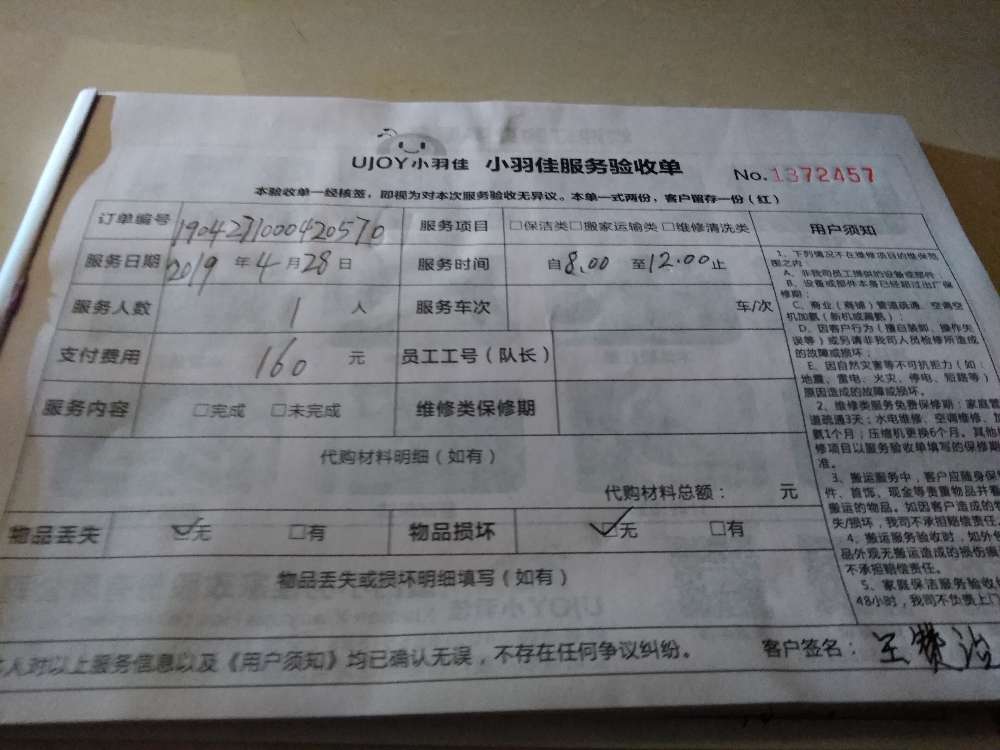 UJOY小羽佳 小羽佳服务验收单 No.1372457
本验收单一经核签，即视为对本次服务验收无异议。本单一式两份，客户留存一份（红）
订单编号 190427100042057 服务项目 □保洁类□搬家运输类 □维修清洗类
服务日期 2019年4月28日 服务时间 自8.00至12.00止
服务人数 1人 服务车次 车/次
支付费用 160元 员工工号（队长）
服务内容 □完成 □未完成 维修类保修期
代购材料明细（如有）
代购材料总额： 元
物品丢失 ☑无 □有 物品损坏 ☑无 □有
物品丢失或损坏明细填写（如有）
人对以上服务信息以及《用户须知》均已确认无误，不存在任何争议纠纷。 客户签名：王
用户须知
1、下列情况不在维修项目的维保范
围之内：
A、非我司员工提供的设备或部件；
B、设备或部件本身已经超过出厂保
修期；
C、商业（商铺）管道疏通、空调空
机加氨（新机或漏氨）；
D、因客户行为（擅自装卸、操作失
误等）或另请非我司人员检修所造成
的故障或损坏；
E、因自然灾害等不可抗拒力（如：
地震、雷电、火灾、停电、短路等）
原因造成的故障或损坏。
2、维修类服务免费保修期：家庭管
道疏通3天；水电维修、空调维修、加
氨1个月；压缩机更换6个月。其他
修项目以服务验收单填写的保修期
准。
3、搬运服务中，客户应随身保
件、首饰、现金等贵重物品并看
搬运的物品。如因客户造成的
失/损坏，我司不承担赔偿责任。
4、搬运服务验收时，如外
品外观无搬运造成的损伤
不承担赔偿责任。
5、家庭保洁服务验收
48小时，我司不负责上